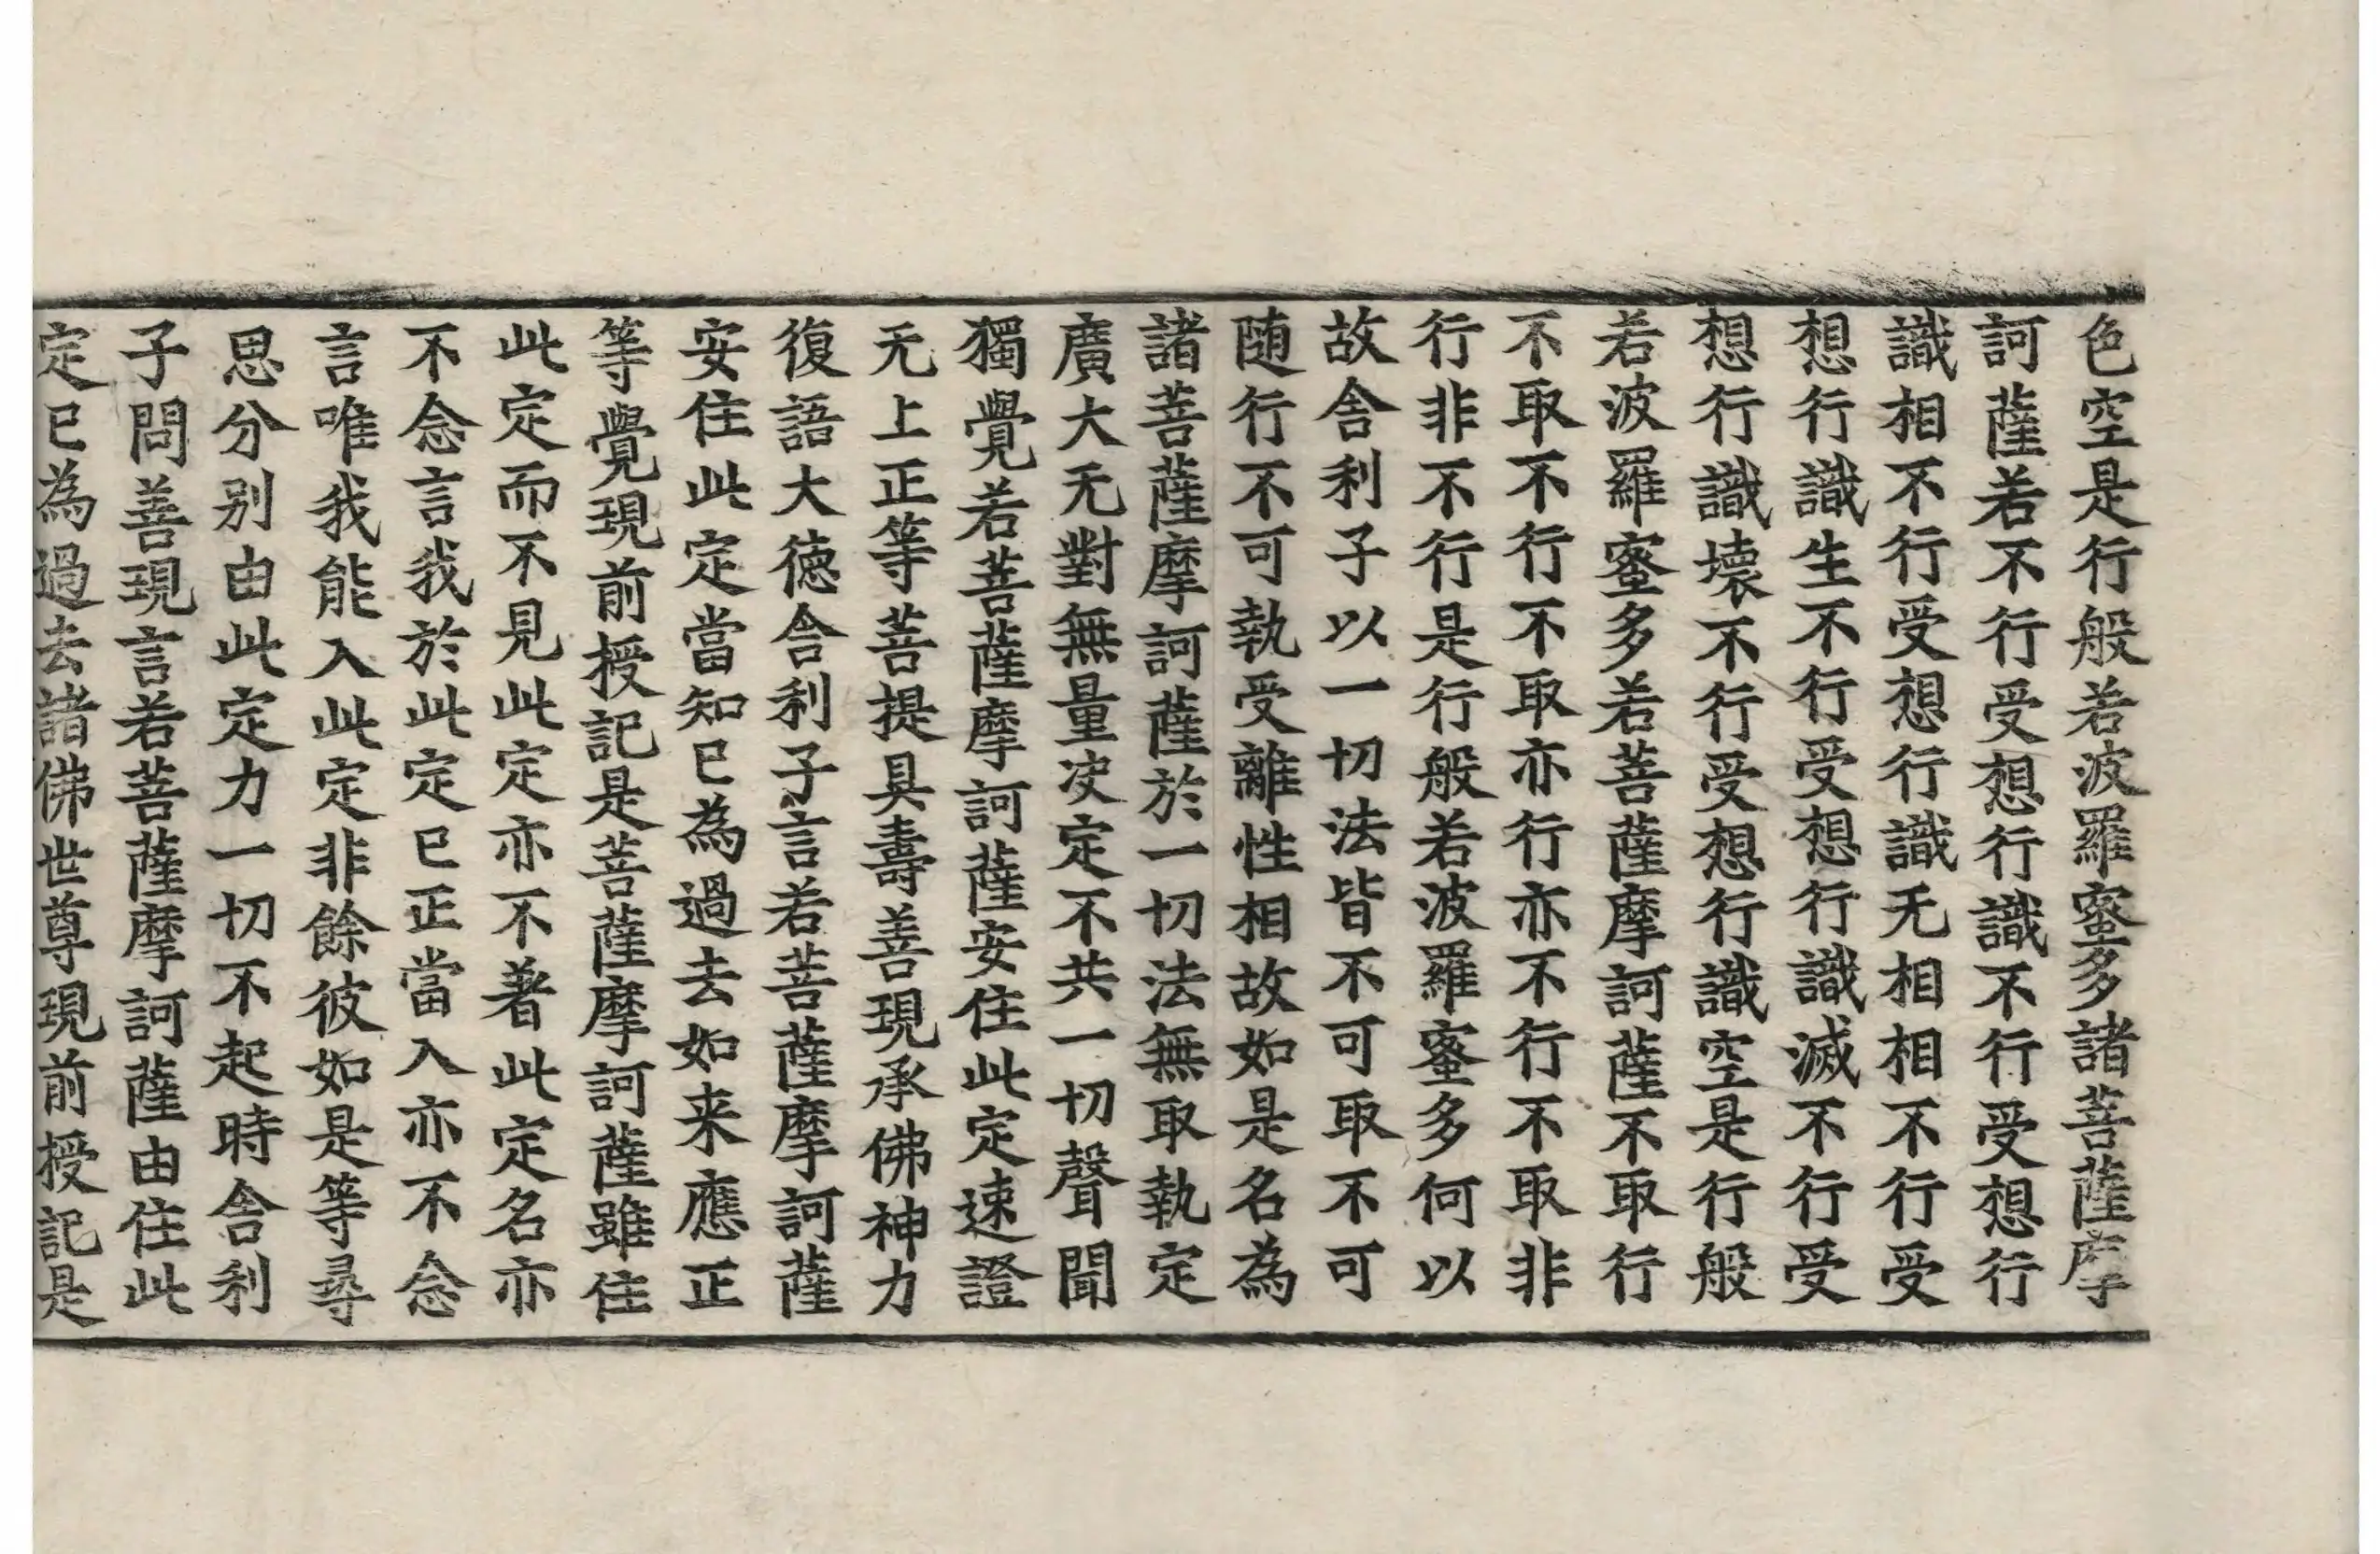 色空是行般若波羅蜜多諸菩薩摩
訶薩若不行受想行識不行受想行
識相不行受想行識无相相不行受
想行識生不行受想行識滅不行受
想行識壞不行受想行識空是行般
若波羅蜜多若菩薩摩訶薩不取行
不取不行不取亦行亦不行不取非
行非不行是行般若波羅蜜多何以
故舍利子以一切法皆不可取不可
随行不可執受離性相故如是名為
諸菩薩摩訶薩於一切法無取執定
廣大无對無量决定不共一切聲聞
獨覺若菩薩摩訶薩安住此定速證
无上正等菩提具壽善現承佛神力
復語大徳舍利子言若菩薩摩訶薩
安住此定當知已為過去如来應正
等覺現前授記是菩薩摩訶薩雖住
此定而不見此定亦不著此定名亦
不念言我於此定已正當入亦不念
言唯我能入此定非餘彼如是等尋
思分别由此定力一切不起時舍利
子問善現言若菩薩摩訶薩由住此
定已為過去諸佛世尊現前授記是